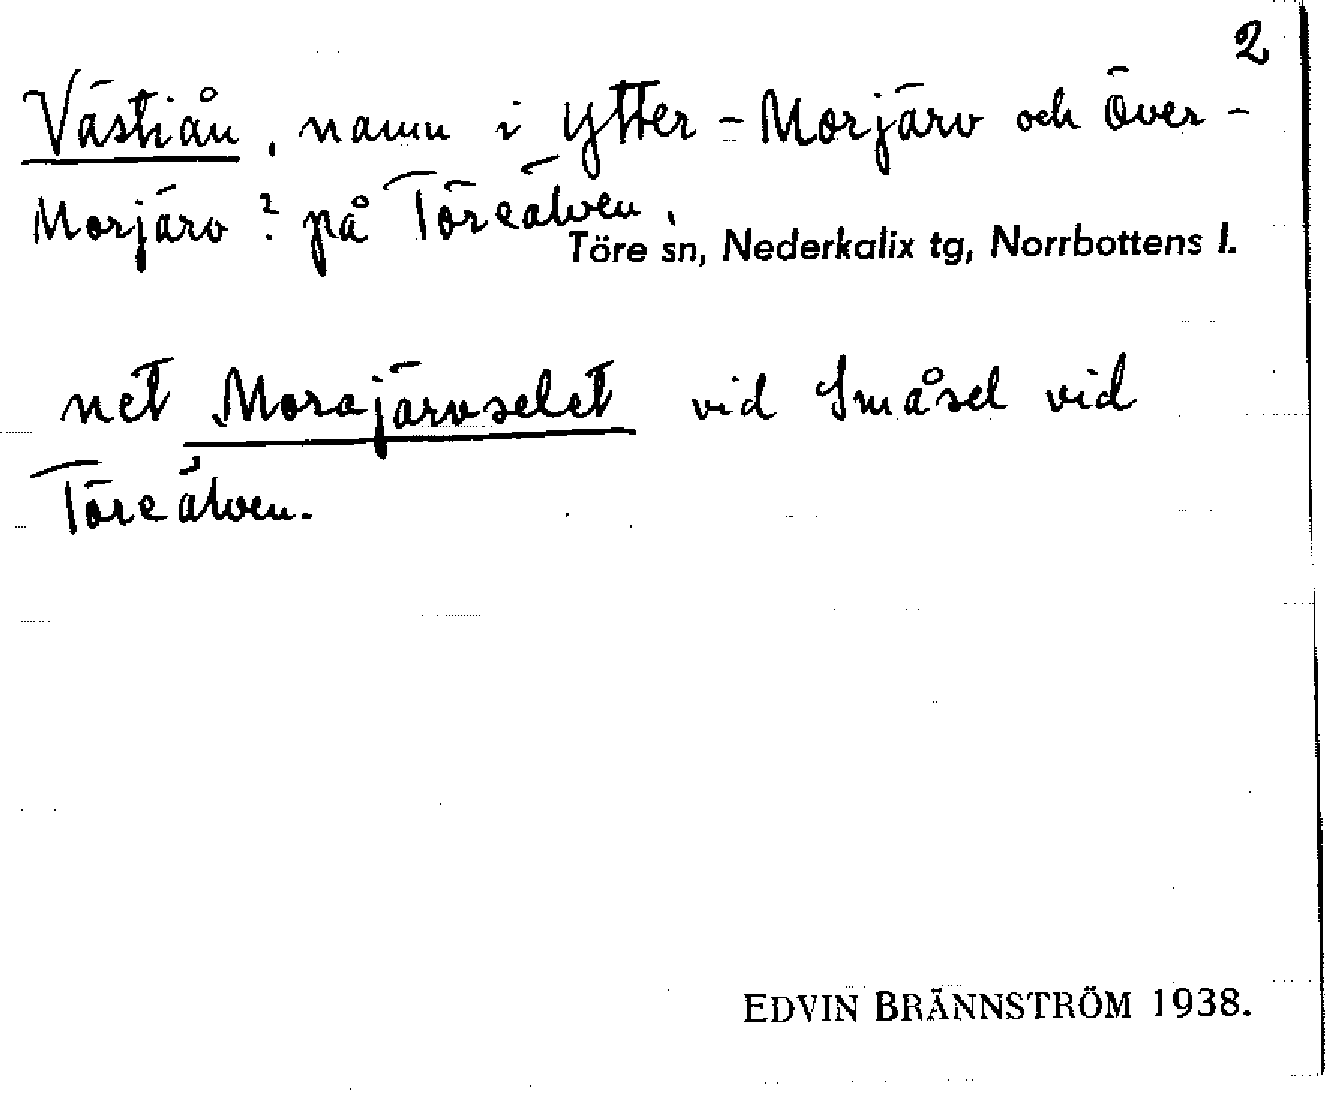 2
Västiån, namn i Ytter-Morjärv och Över-
Morjärv? på Töreälven.
Töre sn, Nederkalix tg, Norrbottens l.
net Morajärvselet vid Småsel vid
Töreälven.
EDVIN BRÄNNSTRÖM 1938.